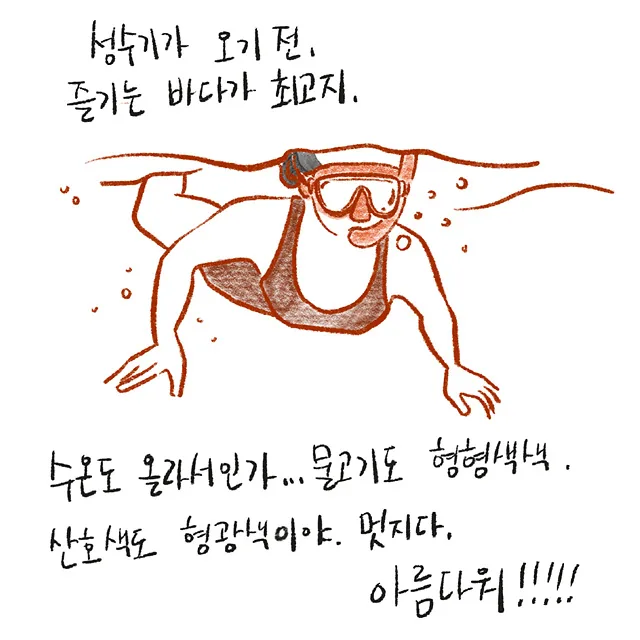 성수기가 오기 전.
즐기는 바다가 최고지.
수온도 올라서인가... 물고기도 형형색색.
산호색도 형광색이야. 멋지다.
아름다워!!!!!